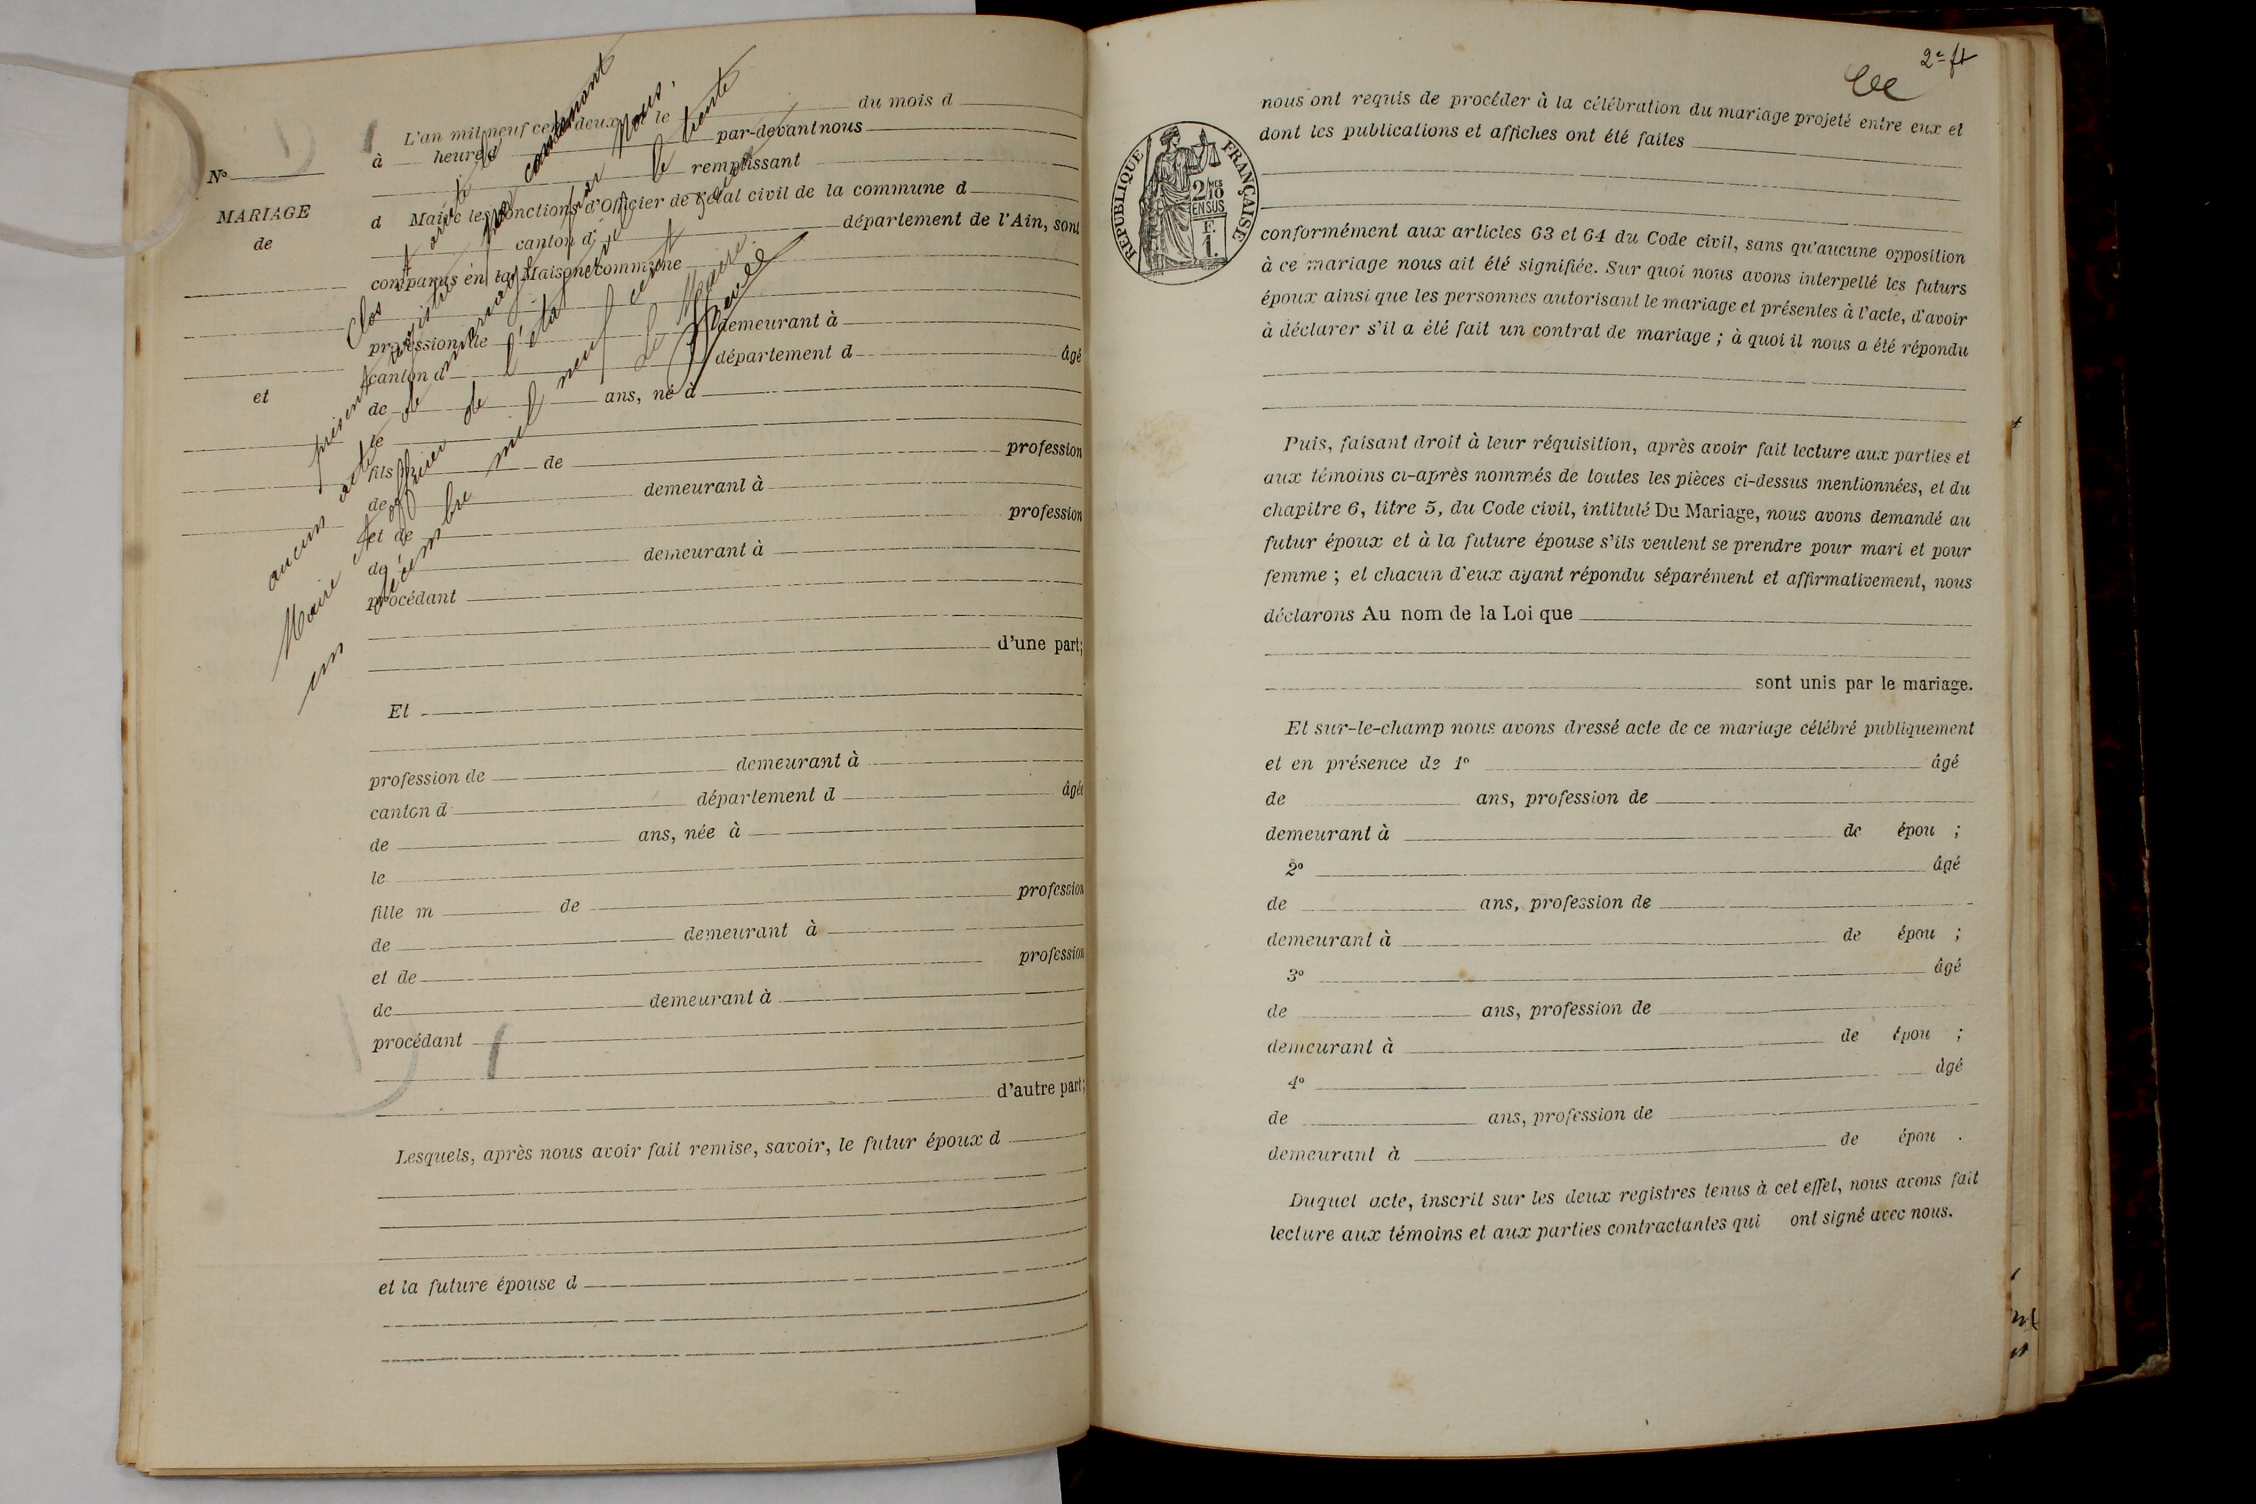 N°
MARIAGE
de
et
L'an mil neuf cent deux le du mois d
à heure d par-devant nous
remplissant
d Maire les fonctions d'Officier de l'état civil de la commune d
canton d département de l'Ain, sont
comparus en la Maison commune
profession de demeurant à
canton d département d âgé
de ans, né à
le
fils de profession
de demeurant à
et de profession
de demeurant à
procédant
d'une part;
Et
profession de demeurant à
canton d département d âgée
de ans, née à
le
fille m de profession
de demeurant à
et de profession
de demeurant à
procédant
d'autre part;
Lesquels, après nous avoir fait remise, savoir, le futur époux d
et la future épouse d
Clos et arrêté le
présent registre ne contenant
aucun acte de mariage par Nous,
Maire et officier de l'état civil le trente
un décembre mil neuf cent deux
Le Maire
2e ft
RÉPUBLIQUE FRANÇAISE
2/10 MES
EN SUS
F.
1.
nous ont requis de procéder à la célébration du mariage projeté entre eux et
dont les publications et affiches ont été faites
conformément aux articles 63 et 64 du Code civil, sans qu'aucune opposition
à ce mariage nous ait été signifiée. Sur quoi nous avons interpellé les futurs
époux ainsi que les personnes autorisant le mariage et présentes à l'acte, d'avoir
à déclarer s'il a été fait un contrat de mariage ; à quoi il nous a été répondu
Puis, faisant droit à leur réquisition, après avoir fait lecture aux parties et
aux témoins ci-après nommés de toutes les pièces ci-dessus mentionnées, et du
chapitre 6, titre 5, du Code civil, intitulé Du Mariage, nous avons demandé au
futur époux et à la future épouse s'ils veulent se prendre pour mari et pour
femme ; et chacun d'eux ayant répondu séparément et affirmativement, nous
déclarons Au nom de la Loi que
sont unis par le mariage.
Et sur-le-champ nous avons dressé acte de ce mariage célébré publiquement
et en présence de 1° âgé
de ans, profession de
demeurant à de épou ;
2° âgé
de ans, profession de
demeurant à de épou ;
3° âgé
de ans, profession de
demeurant à de épou ;
4° âgé
de ans, profession de
demeurant à de épou .
Duquel acte, inscrit sur les deux registres tenus à cet effet, nous avons fait
lecture aux témoins et aux parties contractantes qui ont signé avec nous.